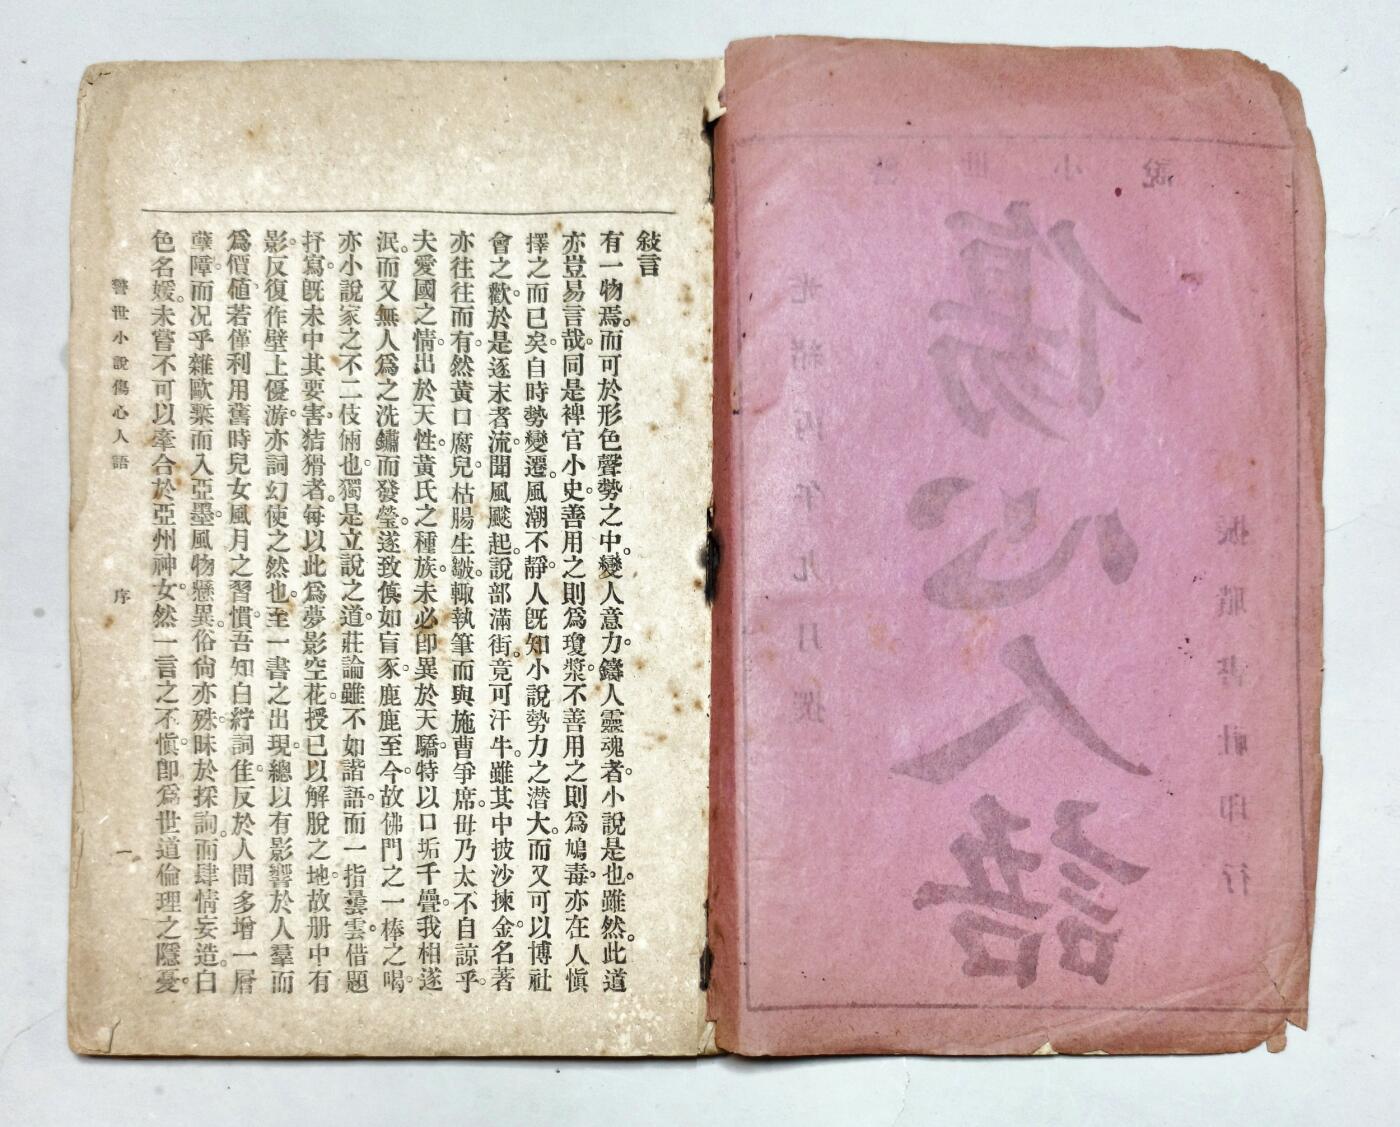 警世小說
傷心人語
振聵書社印行
光緒丙午九月撰
敍言
有一物焉。而可於形色聲勢之中。變人意力。鑄人靈魂者。小說是也。雖然。此道
亦豈易言哉。同是裨官小史。善用之則爲瓊漿。不善用之則爲鳩毒。亦在人愼
擇之而已矣。自時勢變遷。風潮不靜。人旣知小說勢力之潜大。而又可以博社
會之歡。於是逐末者流。聞風飈起。說部滿街。竟可汗牛。雖其中披沙揀金。名著
亦往往而有。然黃口腐兒。枯腸生皺。輙執筆而與施曹爭席。毋乃太不自諒乎。
夫愛國之情。出於天性。黃氏之種族。未必卽異於天驕。特以口垢千疊。我相遂
泯。而又無人爲之洗鏽而發瑩。遂致傎如盲豕。鹿鹿至今。故佛門之一棒之喝。
亦小說家之不二伎倆也。獨是立說之道。莊論雖不如諧語。而一指曇雲。借題
抒寫。旣未中其要害。猾猾者。每以此爲夢影空花。授已以解脫之地。故册中有
影。反復作壁上優游。亦詞幻使之然也。至一書之出現。總以有影響於人羣而
爲價値。若僅利用舊時兒女風月之習慣。吾知白紵詞隹。反於人間多增一層
孽障。而况乎雜歐槧而入亞墨。風物懸異。俗尙亦殊。昧於採詢。而肆情妄造。白
色名媛。未嘗不可以牽合於亞州神女。然一言之不愼。卽爲世道倫理之隱憂。
警世小說傷心人語
序
一